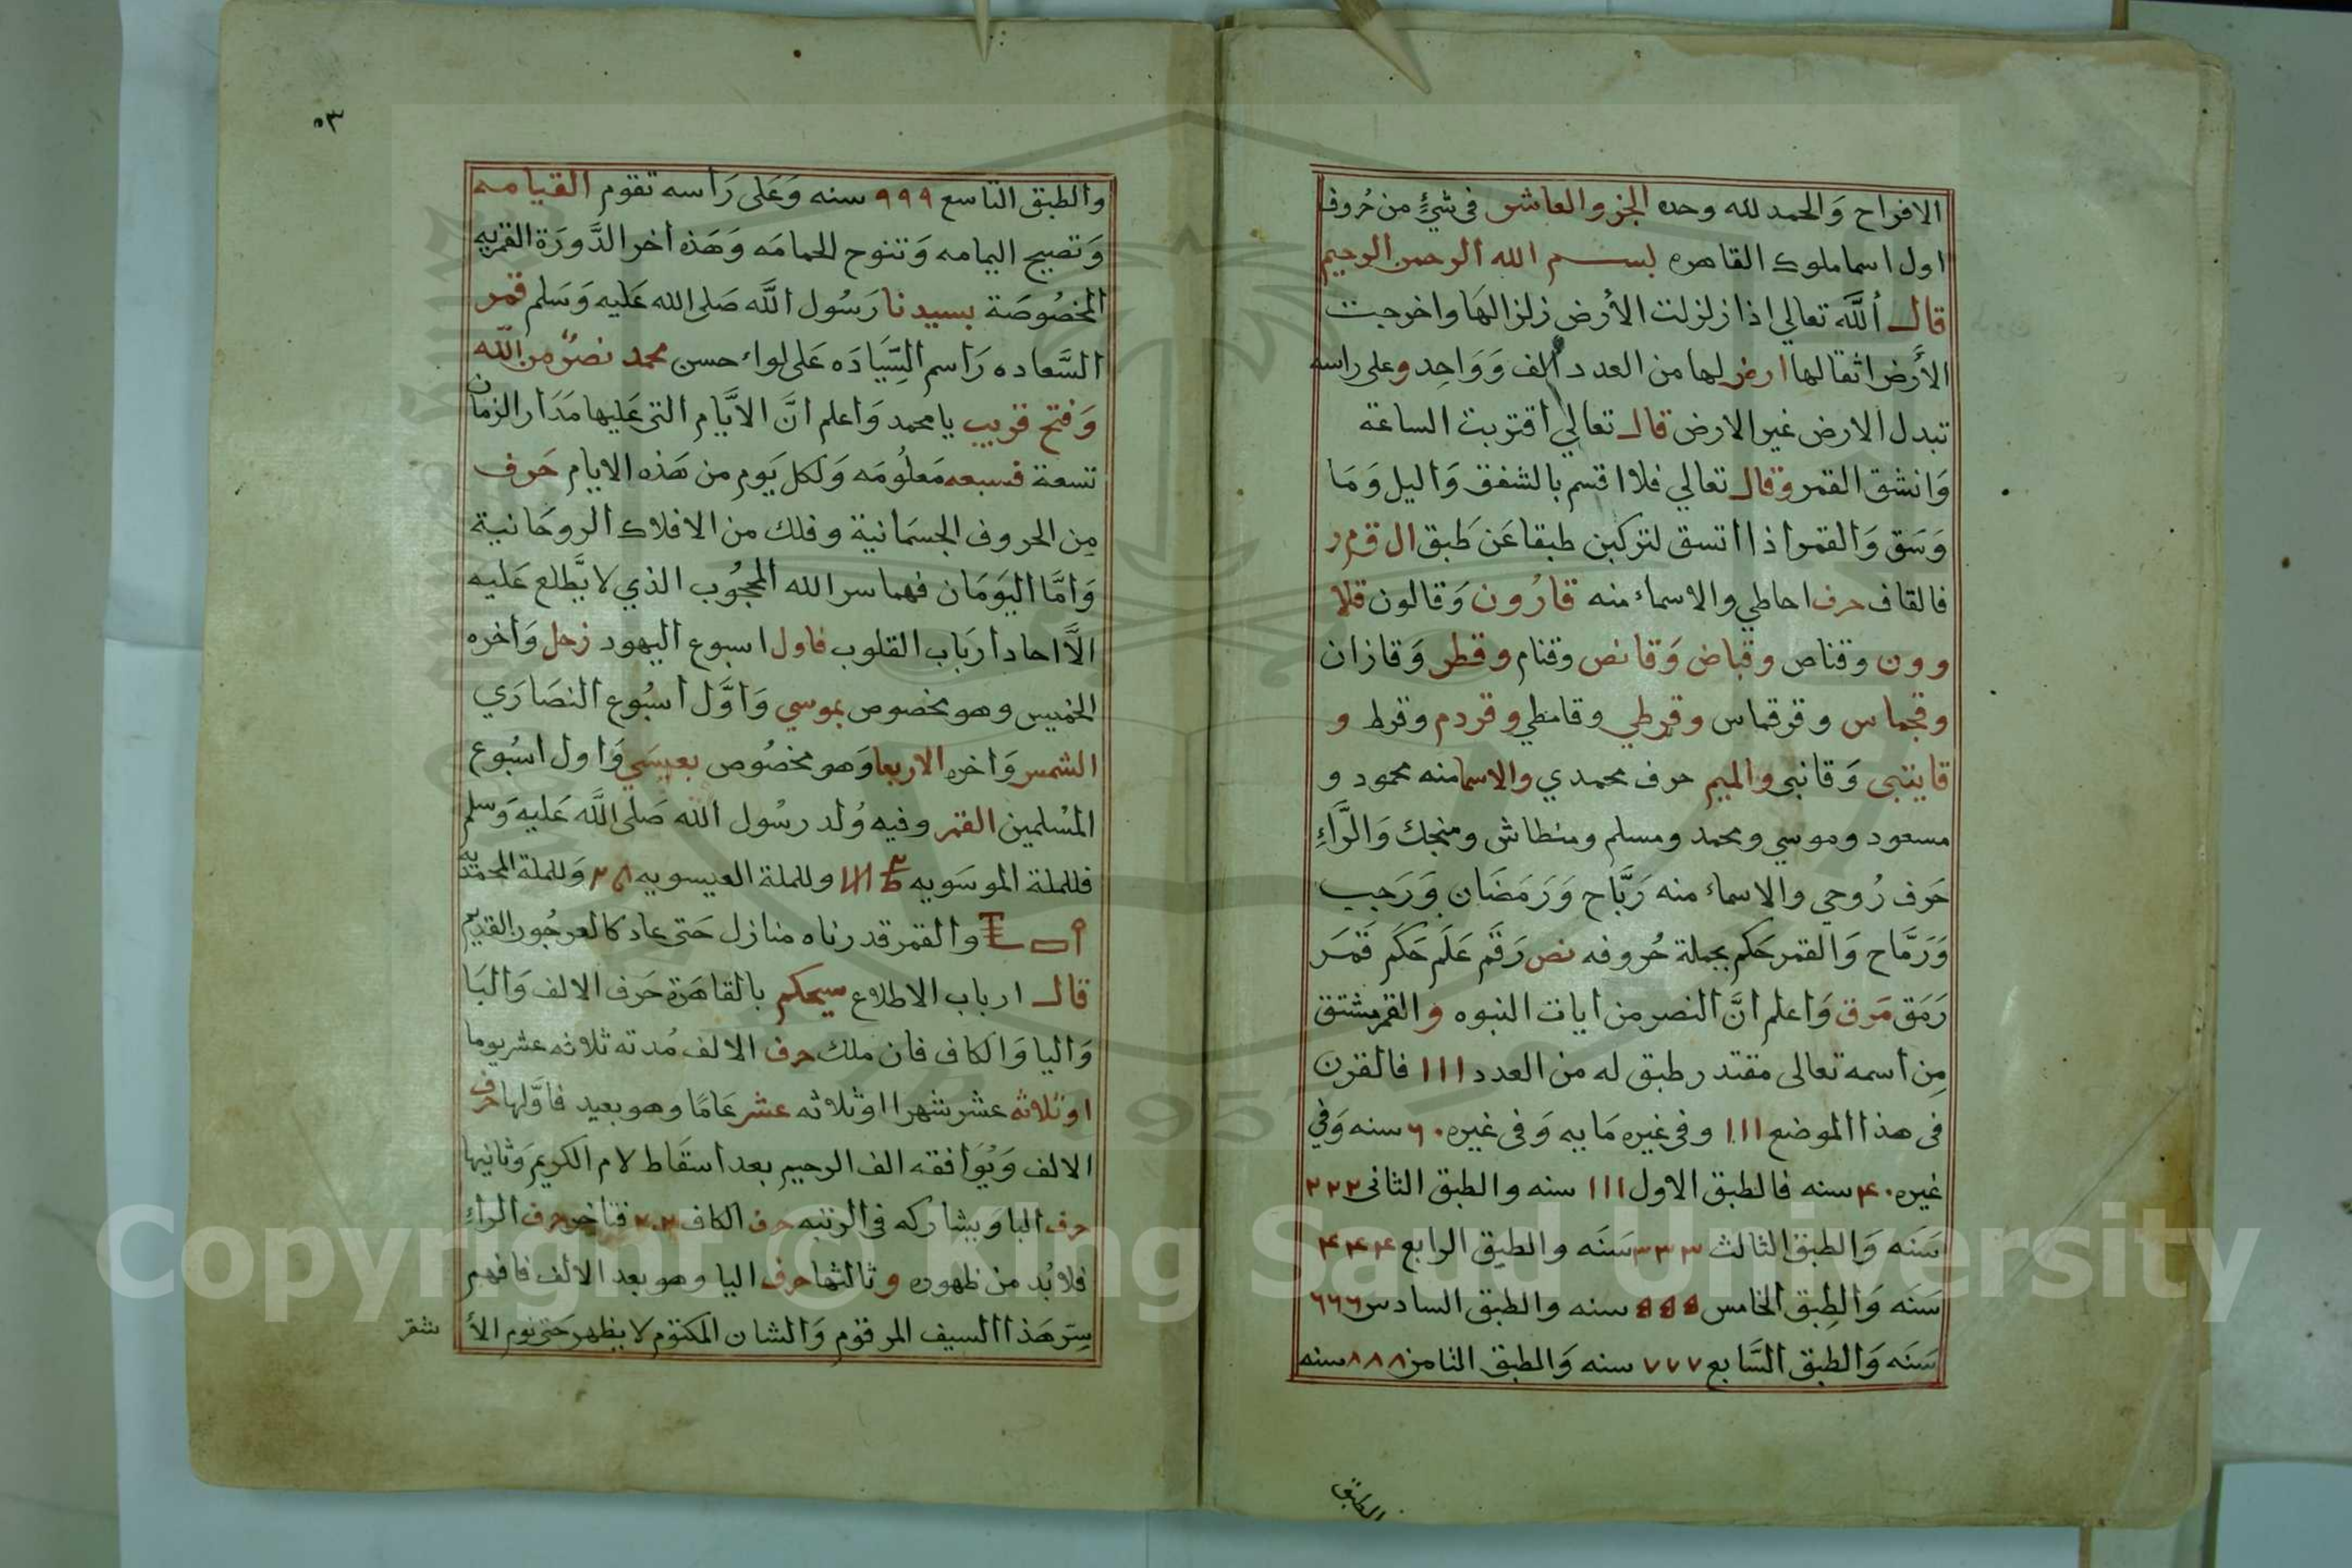 الافراح وَالحمد لله وحده الجزو العاشر في شيءٍ من حُروف
اول اسما ملوك القاهره بسم الله الرحمن الرحيم
قال أللَّه تعالي اذا زلزلت الأرض زلزالهَا واخرجت
الأَرض اثقالها ارض لها من العدد ألف وَوَاحِد وعلى راسه
تبدل الارض غير الارض قال تعالي اقتربت الساعة
وَانشق القمر وقال تعالي فلا اقسم بالشفق وَاليل وَمَا
وَسَق وَالقمر اذا اتسق لتركبن طبقا عَن طَبق ال ق م ر
فالقاف حرف احاطي والاسماء منه قارُون وَقالون قلا
وون وقناص وقباض وَقانص وقنام وقطر وَقازان
وقجماس وقرقماس وقرطي وقامطي وقردم وقرط و
قايتبى وَقانبى والميم حرف محمدي والاسما منه محمود و
مسعود وموسي ومحمد ومسلم ومنطاش ومنجك وَالرَّاءِ
حَرَف رُوحي والاسماء منه رَبَّاح وَرَمَضَان وَرَجب
وَرَمَّاح وَالقمر حَكم بجملة حُروفه نص رَقَم عَلَم حَكَم قَمَر
رَمَق مَرق وَاعلم انَّ النصر من ايات النبوه والقمر مشتق
مِن اسمه تعالى مقتدر طبق له من العدد ١١١ فالقرن
في هذا الموضع ١١١ وفي غيره مَايه وَفي غيره ٦٠ سنه وَفي
غيره ٤٠ سنه فالطبق الاول ١١١ سنه والطبق الثاني ٢٢٢
سَنَه وَالطبق الثالث ٣٣٣ سَنَه والطبق الرابع ٤٤٤
سَنَه وَالطِبق الخامس ۵۵۵ سنه والطبق السادس ٦٦٦
سَنَه وَالطِبق السَّابع ٧٧٧ سنه وَالطبق الثامن ٨٨٨ سنه
الطبق
٥٣
والطبق التاسع ٩٩٩ سنه وَعَلى رَاسه تقوم القيامه
وَتصيح اليمامه وَتنوح الحمامَه وَهَذه اخر الدَّورَة القمريه
المخصُوصَة بسيدنا رَسُول اللَّه صَلى الله عَليه وَسَلم قمر
السَّعاده رَاسم السِّيَادَه عَلى لواء حسن محمد نصرٌ من الله
وَفتح قريب يا محمد وَاعلم انَّ الايَّام التى عَليها مَدَار الزمان
تسعة فسبعه مَعلُومَه وَلكل يَوم من هَذه الايام حَرف
مِن الحروف الجسمَانية وفلك من الافلاك الروحَانية
وَامَّا اليَومَان فهما سر الله المحجُوب الذي لا يَّطلع عَليه
الَّا احاد ارَباب القلوب فاول اسبوع اليهود زحل وَاخره
الخميس وهو مخصوص بموسي وَاوَّل اسبُوع النصَارَي
الشمس وَاخره الاربعا وَهو مخصُوص بعيسَي وَاول اسبُوع
المسْلمين القمر وفيه وُلد رسُول الله صَلى اللَّه عَليه وَسلم
فللملة الموسَويه وللملة العيسويه وَللملة المحمديه
والقمر قدرناه منازل حَتى عاد كالعرجُون القديم
قال ارباب الاطلاع سيحكم بالقاهَرة حَرف الالف وَالبَا
وَاليا وَالكاف فان ملك حرف الالف مُدته ثلاثه عشر يوما
او ثلاثه عشر شهرا او ثلاثه عشر عَامًا وهو بعيد فاوَّلها حرف
الالف وَيُوَافقه الف الرحيم بعد اسقَاط لام الكريم وَثانيها
حرف البا وَيشاركه في الرتبه حرف الكاف حرف الراءِ
فلا بُد من ظهوره وثالثها حرف اليا وهو بعد الالف فافهم
سِر هَذا السيف المرقوم وَالشان المكتوم لا يظهر حَتى نوم الأ
شقر
Copyright © King Saud University